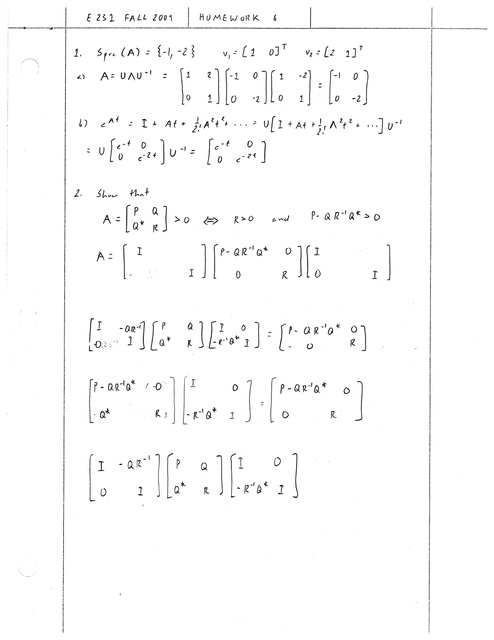 E 231 FALL 2009 HOMEWORK 6
1. Spec (A) = {-1, -2} v₁ = [1 0]ᵀ v₂ = [2 1]ᵀ
a) A = UΛU⁻¹ = [1 2; 0 1] [-1 0; 0 -2] [1 -2; 0 1] = [-1 0; 0 -2]
b) e^At = I + At + 1/2! A²t² + ... = U[I + Λt + 1/2! Λ²t² + ...] U⁻¹
= U [e^-t 0; 0 e^-2t] U⁻¹ = [e^-t 0; 0 e^-2t]
2. Show that
A = [P Q; Q* R] > 0 ⟺ R > 0 and P - QR⁻¹Q* > 0
A = [I ; I] [P - QR⁻¹Q* 0; 0 R] [I ; 0 I]
[I -QR⁻¹; 0 I] [P Q; Q* R] [I 0; -R⁻¹Q* I] = [P - QR⁻¹Q* 0; 0 R]
[P - QR⁻¹Q* 0; Q* R] [I 0; -R⁻¹Q* I] = [P - QR⁻¹Q* 0; 0 R]
[I -QR⁻¹; 0 I] [P Q; Q* R] [I 0; -R⁻¹Q* I]